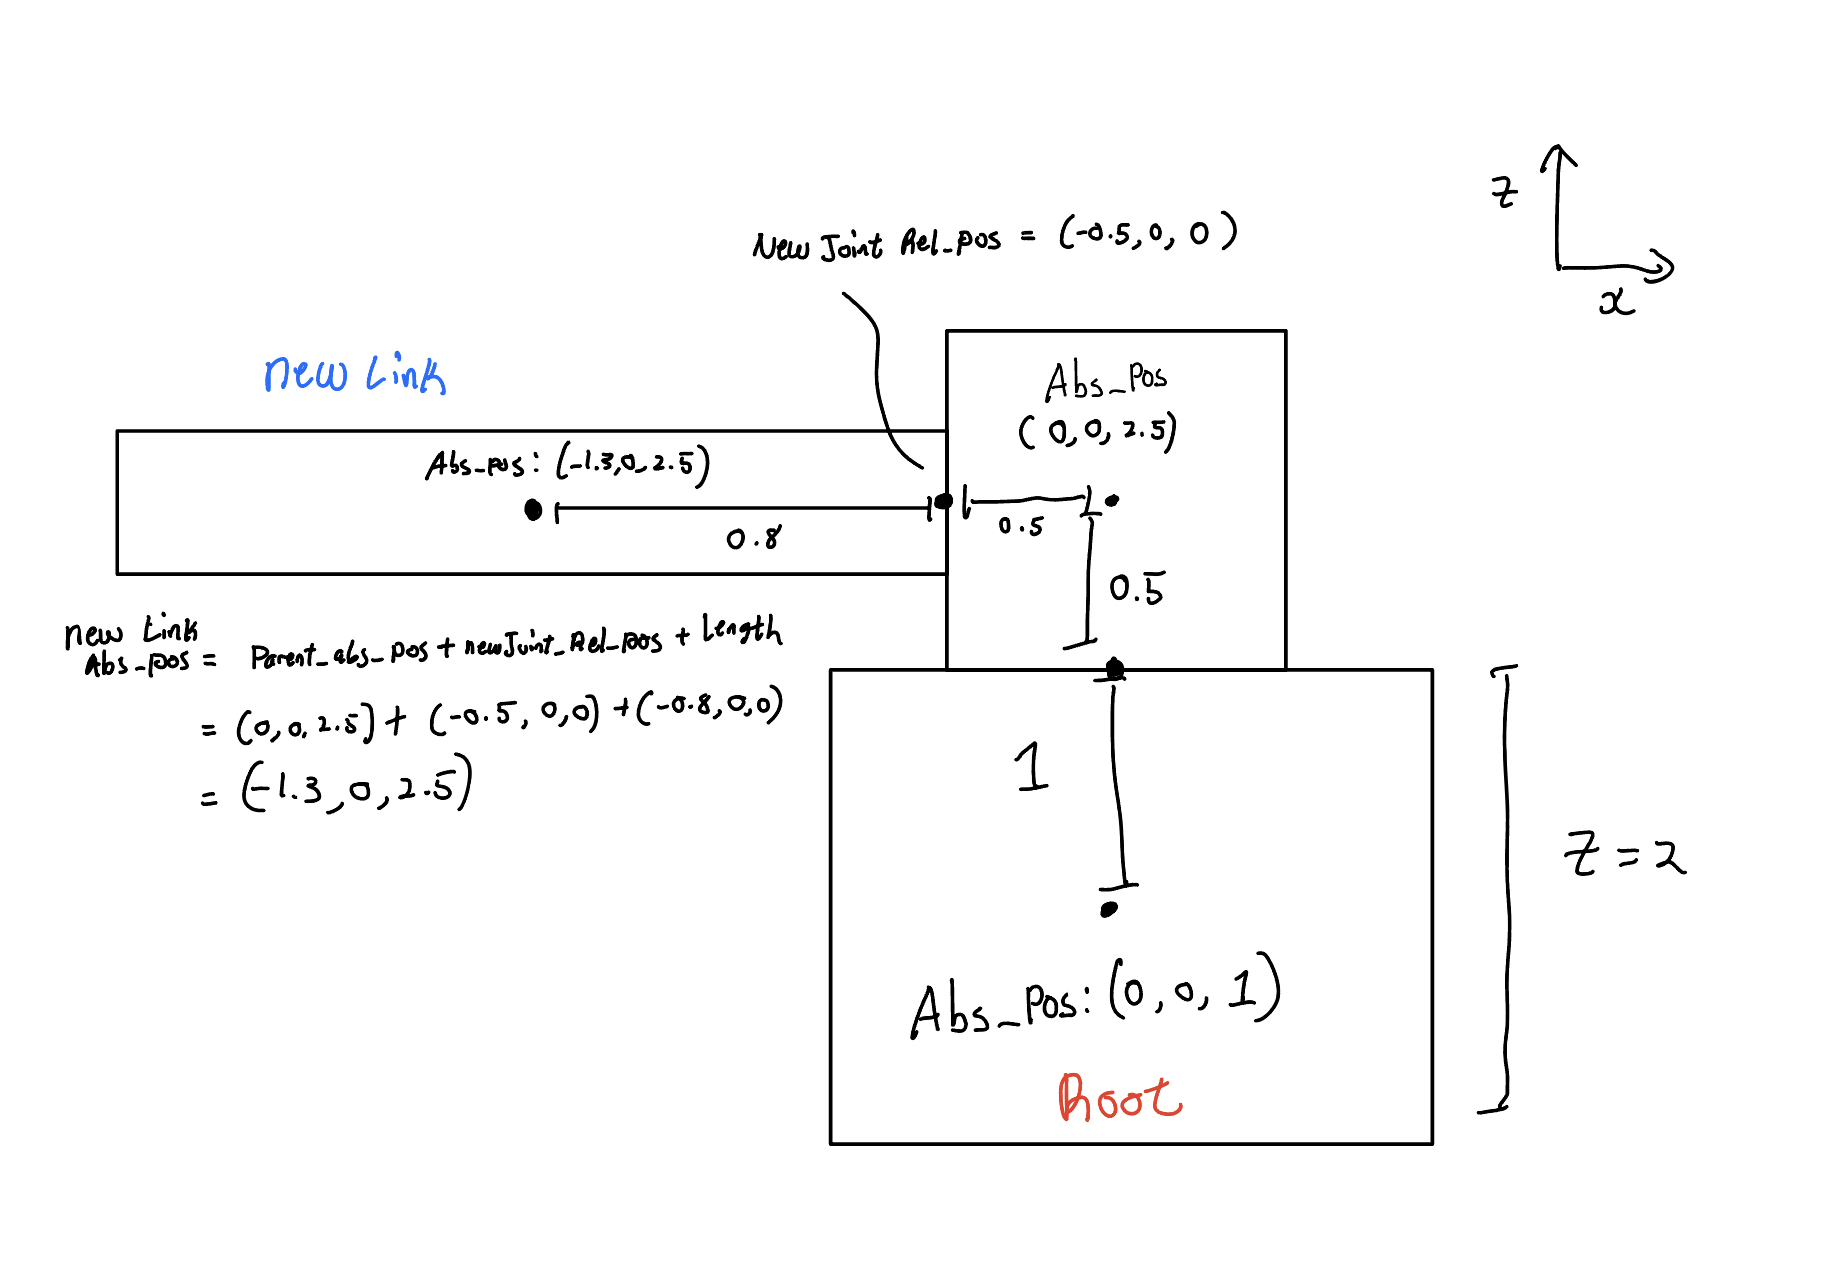 z
x
New Joint Rel_pos = (-0.5, 0, 0)
new Link
Abs_Pos
(0, 0, 2.5)
Abs_pos: (-1.3, 0, 2.5)
0.8
0.5
0.5
new Link
Abs_pos = Parent_abs_pos + newJoint_Rel_pos + Length
= (0, 0, 2.5) + (-0.5, 0, 0) + (-0.8, 0, 0)
= (-1.3, 0, 2.5)
1
Z = 2
Abs_Pos: (0, 0, 1)
Root